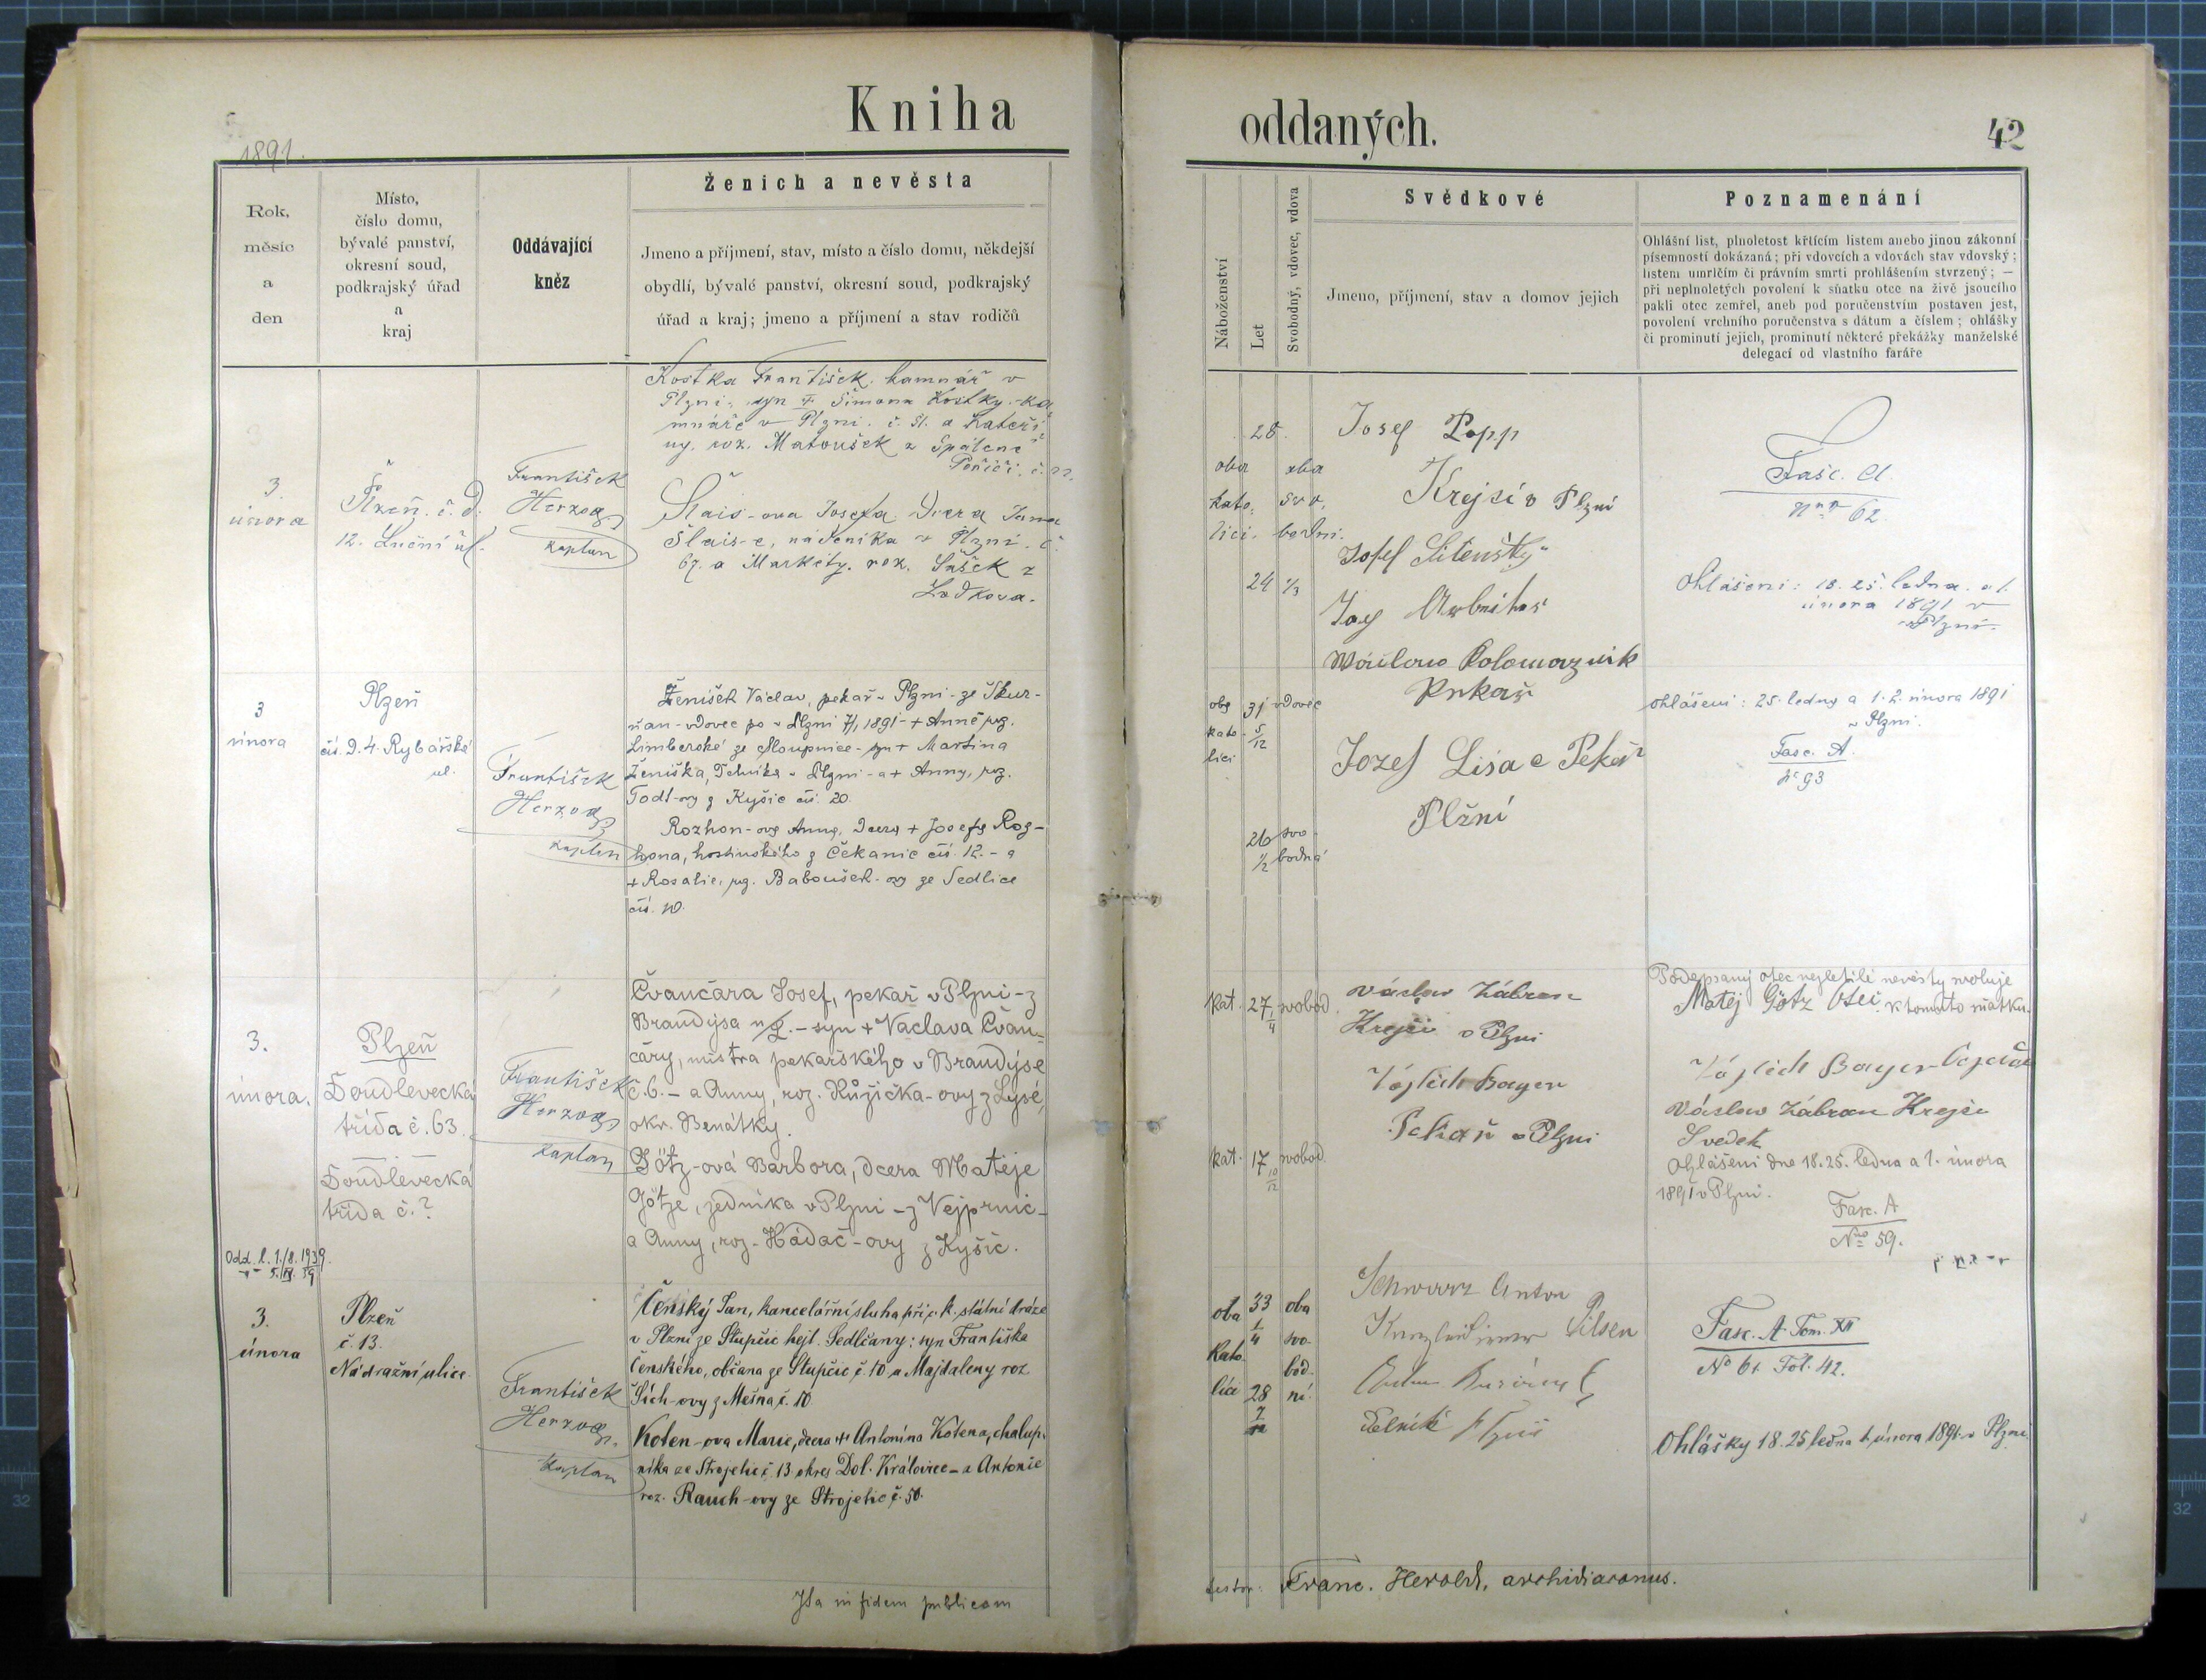 Kniha
oddaných.
42
1891.
Rok,
měsíc
a
den
Místo,
číslo domu,
bývalé panství,
okresní soud,
podkrajský úřad
a
kraj
Oddávající
kněz
Ženich a nevěsta
Jmeno a příjmení, stav, místo a číslo domu, někdejší
obydlí, bývalé panství, okresní soud, podkrajský
úřad a kraj; jmeno a příjmení a stav rodičů
Náboženství
Let
Svobodný, vdovec, vdova
Svědkové
Jmeno, příjmení, stav a domov jejich
Poznamenání
Ohlášní list, plnoletost křtícím listem anebo jinou zákonní
písemností dokázaná; při vdovcích a vdovách stav vdovský;
listem umrlčím či právním smrti prohlášením stvrzený; —
při neplnoletých povolení k sňatku otce na živě jsoucího
pakli otec zemřel, aneb pod poručenstvím postaven jest,
povolení vrchního poručenstva s dátum a číslem; ohlášky
či prominutí jejich, prominutí některé překážky manželské
delegací od vlastního faráře
3.
února
Plzeň. č. d.
12. Luční ul.
František
Herzog
kaplan
Kostka František. kamnář v
Plzni, syn + Šimona Kostky, ka
mnáře v Plzni. č. 51. a Kateři
ny. roz. Matoušek z Spálené
Poříčí. č. 22.
Šlais-ova Josefa. Dcera Jana
Šlais-e, nádeníka v Plzni. č.
67. a Markéty. roz. Sašek z
28.
oba
kato
lici.
oba
svo
bodni.
24 1/3
Josef Popp
Krejsí v Plzni
Josef
Fasc. A.
Nro 62.
Ohlášeni: 18. 25. ledna. a 1.
února 1891 v
Plzni.
3
února
Plzeň
čís. d. 4. Rybářská
ul.
František
Herzog
kaplan
Ženíšek Václav, pekař v Plzni - ze Skur-
ňan - vdovec po v Plzni 7/1 1891 - + Anně roz.
Limberské ze Sloupnice - syn + Martina
Ženíška, v Plzni - a + Anny, roz.
Todl-ovy z Kyšic čís. 20.
Rozhon-ova Anna, dcera + Josefa Roz-
hona, hostinského z Čekanic čís. 12. - a
+ Rosalie, roz. Baboušek-ovy ze Sedlice
čís. 10.
oba
kato
lici
31
5/12
vdovec
26
1/2
svo
bodná
Polomaznik
Pekař
Jozef Lisa e Pekař
Plžní
ohlášeni: 25. ledna a 1. 2. února 1891
v Plzni.
Fasc. A.
N 93
3.
února.
Plzeň
Doudlevecká
třída č. 63.
Doudlevecká
třída č. ?
František
Herzog
kaplan
Čvančara Josef, pekař v Plzni - z
Brandýsa n/L. - syn + Václava Čvan-
čary, mistra pekařského v Brandýse
č. 6. - a Anny, roz. Růžička-ovy z Lysé,
okr. Benátky.
Götz-ová Barbora, dcera Matěje
Götze, zedníka v Plzni - z Vejprnic -
a Anny, roz. Hádač-ovy z Kyšic.
kat.
27
1/4
svobod.
kat.
17
10/12
svobod.
Václav Zábran
Krejčí v Plzni
Vojtěch Bayer
Pekař v Plzni
Podepsaný otec nezletilé nevěsty svoluje
Matěj Götz Otec k tomuto sňatku.
Vojtěch Bayer
Václav Zábran Krejčí
Svedek
Ohlášeni dne 18. 25. ledna a 1. února
1891 v Plzni.
Fasc. A
No 59.
3.
února
Plzeň
č. 13.
Nádražní ulice
František
Herzog
kaplan
Čenský Jan, kancelářní sluha při c. k. státní dráze
v Plzni ze Stupčic hejt. Sedlčany: syn Františka
Čenského, občana ze Stupčic, č. 10 a Majdaleny roz
Šich-ovy z Mešna, č. 10.
Koten-ova Marie, dcera + Antonína Kotena, chalup-
níka ze Strojetic č. 13 okres Dol. Kralovice - a Antonie
roz. Rauch-ovy ze Strojetic č. 50.
oba
kato
lici
33
1
4
oba
svo-
bod-
ni.
28
Schwarz Anton
Pilsen
Fasc. A. Tom. XII
No 61. Fol. 42.
Ohlášky 18. 25 ledna 1. února 1891 v Plzni.
Ita in fidem publicam
Franc. Herold, archidiaconus.